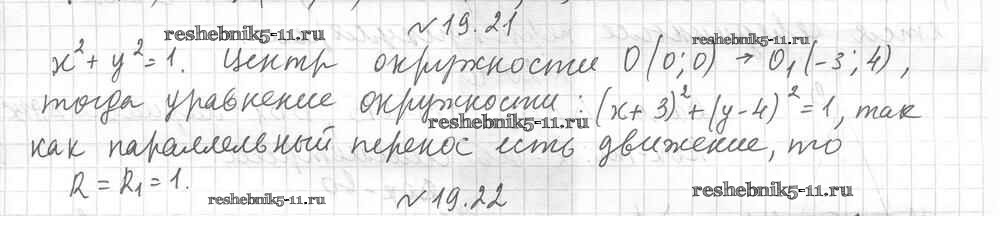 №19.21
reshebnik5-11.ru
reshebnik5-11.ru
x²+y²=1. Центр окружности O(0;0) → O₁(-3;4),
тогда уравнение окружности: (x+3)²+(y-4)²=1, так
reshebnik5-11.ru
как параллельный перенос есть движение, то
R=R₁=1.
reshebnik5-11.ru
№19.22
reshebnik5-11.ru